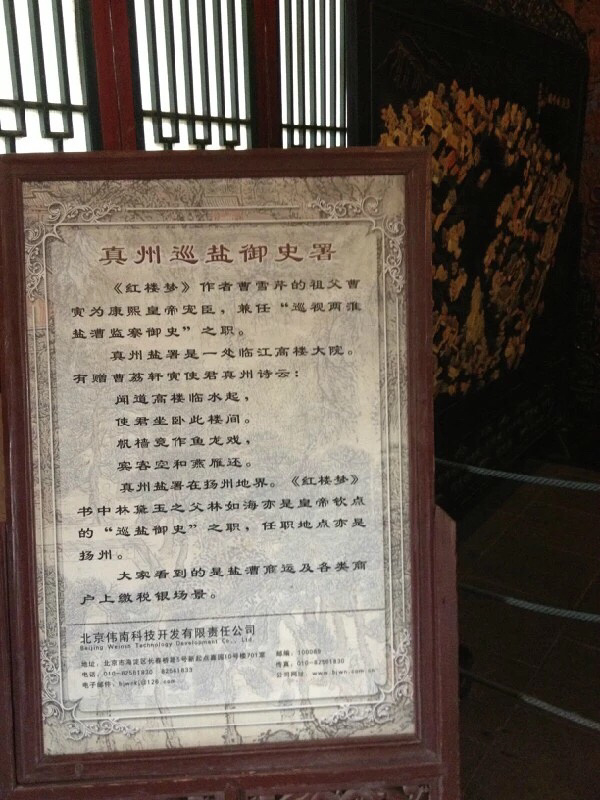 真州巡盐御史署
《红楼梦》作者曹雪芹的祖父曹
寅为康熙皇帝宠臣，兼任“巡视两淮
盐漕监察御史”之职。
真州盐署是一处临江高楼大院。
有赠曹荔轩寅使君真州诗云：
闻道高楼临水起，
使君坐卧此楼间。
帆樯竞作鱼龙戏，
宾客空和燕雁还。
真州盐署在扬州地界。《红楼梦》
书中林黛玉之父林如海亦是皇帝钦点
的“巡盐御史”之职，任职地点亦是
扬州。
大家看到的是盐漕商运及各类商
户上缴税银场景。
北京伟南科技开发有限责任公司
Beijing Weinia Technology Development Co., Ltd.
地址：北京市海淀区长春桥路5号新起点嘉园10号楼701室 邮编：100089
电话：010-82561830 82561833 传真：010-82561830
电子邮件：bjwnkj@126.com 公司网址：www.bjwn.com.cn